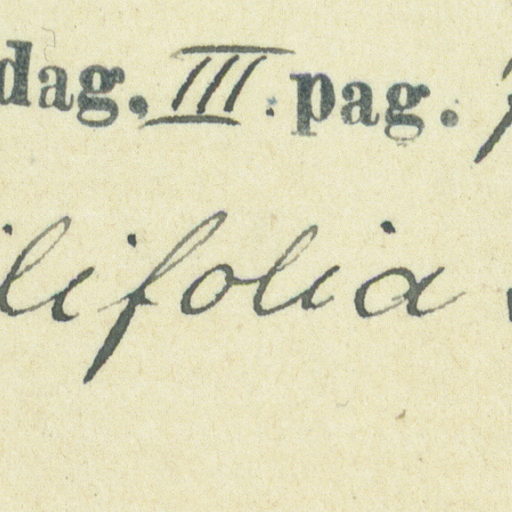 dag. III. pag.
ilifolia